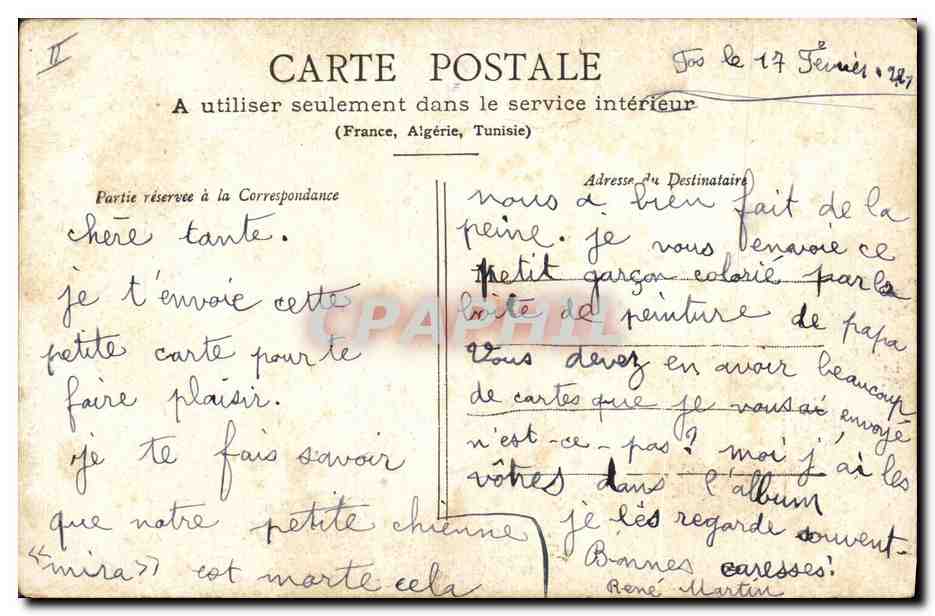 II
CARTE POSTALE
Fos le 17 Février
A utiliser seulement dans le service intérieur
(France, Algérie, Tunisie)
Partie réservee à la Correspondance
chère tante.
je t'envoie cette
petite carte pour te
faire plaisir.
je te fais savoir
que notre petite chienne
"mira" est morte cela
Adresse du Destinataire
nous a bien fait de la
peine. je vous envoie ce
petit garçon colorié par la
boîte de peinture de papa
Vous devez en avoir beaucoup
de cartes que je vous ai envoyé
n'est-ce-pas? moi j'ai les
vôtres dans l'album
je les regarde souvent-
Bonnes caresses!
René Martin
CPAPHIL